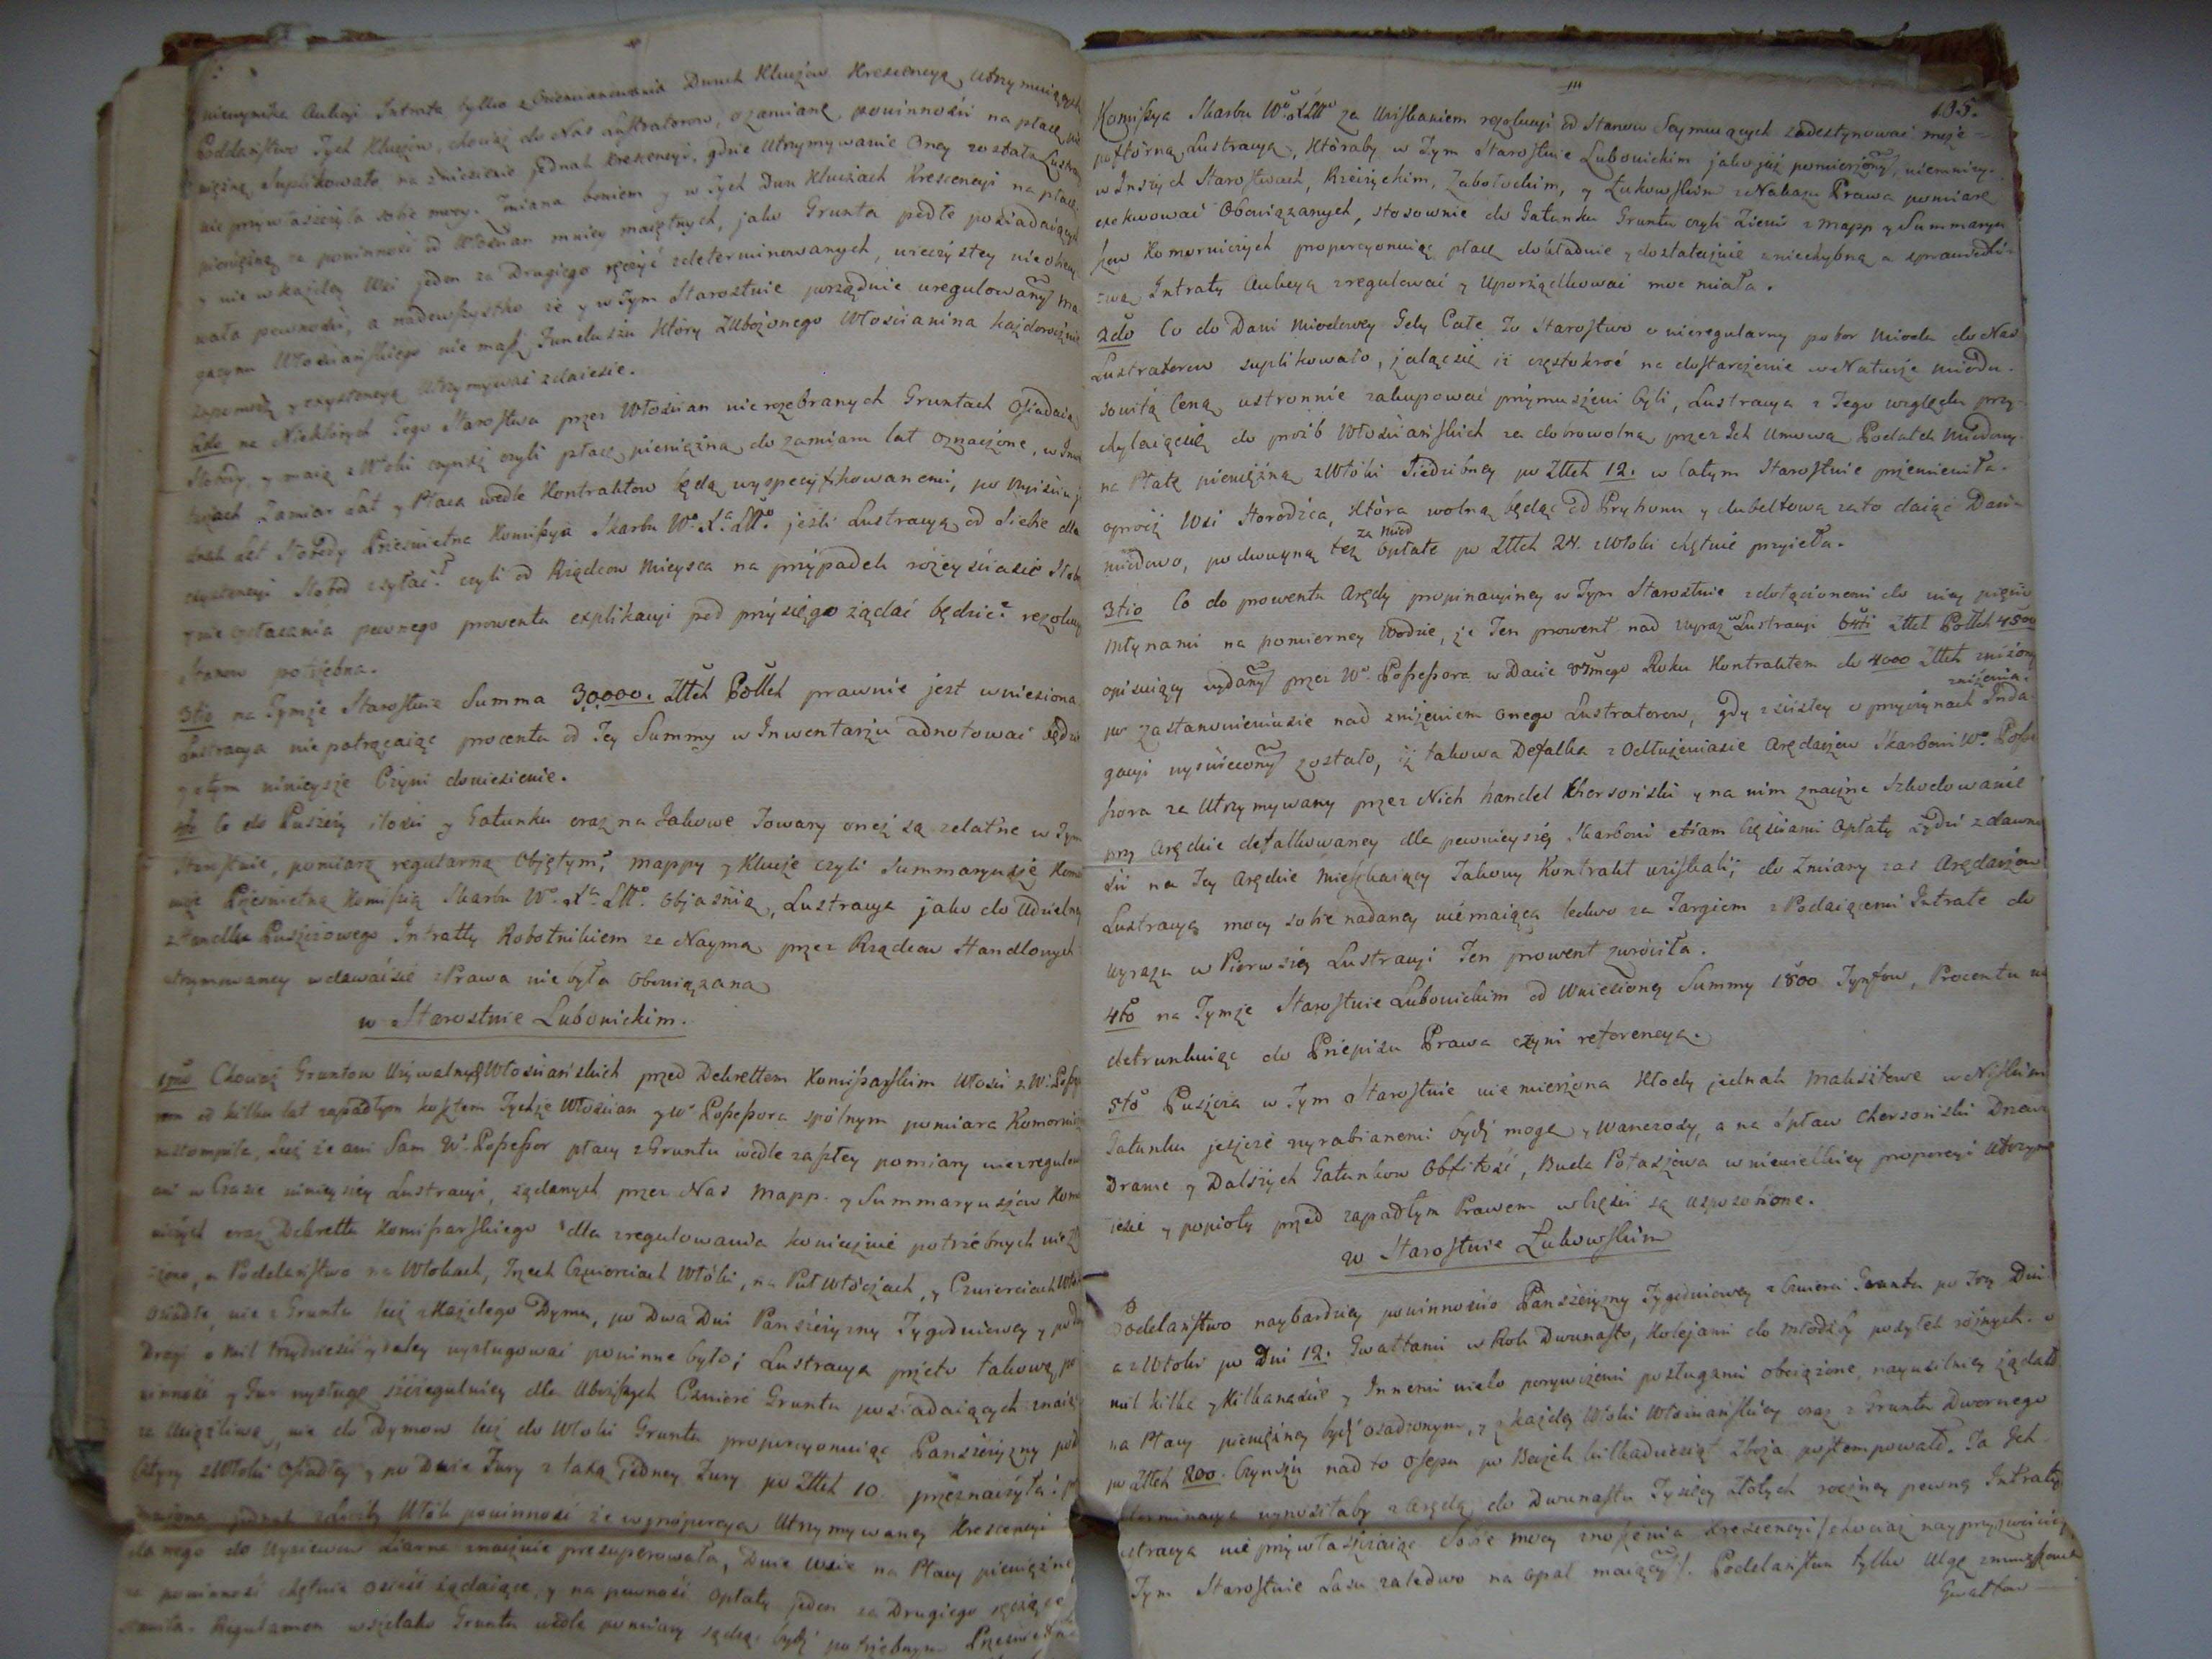 wienynika Aukcji Intrata tylko z Dwuch Kluczow Krescencyą Utrzymuiących
Poddanstwo Tych Kluczow, chociaż do Nas Lustratorow, o zamianę powinności na płacę
nieżną Suplikowało na zniesienie jednak Krescencyi, gdzie Utrzymywanie Oney została Lustracya
nie przywłaszczyła sobie mocy. Zmiana bowiem y w Tych Dwu Kluczach Krescencyi na płacę
pieniężną za powinność od Włościan mniey maiętnych, jako Grunta podłe posiadaiących
y nie w każdey Wsi jeden za Drugiego ręczyć zdeterminowanych, wieczystey nie obiecy
wała pewności, a nadewszystko że y w Tym Starostwie porządnie uregulowany Ma
gazynu Włosciańskiego nie masz Funduszu Który Zubożonego Włoscianina każdorocznie
zapomodz y exystencyą Utrzymywać zdaiesie.
2do na Niektórych Tego Starostwa przez Włoscian nierozebranych Gruntach Osiadaią
Słobody, y maią z Włoki czynsz czyli płacę pieniężną do zamiaru lat oznaczone, w Inwen
tarzach Zamiar Lat y Płaca wedle Kontraktow będą wyspecyfikowanemi, po wyisciu je
dnak Lat Słobody Przeswietna Kommissya Skarbu Wo. Xa. Litto. jeśli Lustracyą od Siebie dla
exystencyi Słobod zsyłać? czyli od Rządcow Mieysca na przypadek rozeyściasie Słobod
y nie opłacania pewnego prowentu explikacyi pod przysięgą żądać będzie? rezolucya
Stanow potrzebna.
3tio na Tymże Starostwie Summa 30,000. Złłch Połłch prawnie jest wniesiona
Lustracya nie potrącaiąc procentu od Tey Summy w Inwentarzu adnotować będzie
y o tym ninieysze Czyni doniesienie.
4to Co do Puszczy ilości y Gatunku oraz na Jakowe Towary onęż są zdatne w Tym
Starostwie, pomiarą regularną Objętym, mappy y Klucze czyli Summaryusze Komor
nicze Przeswietną Kommissią Skarbu Wo. Xa. Litto. objaśnią, Lustracya jako do Udzielney
z Handlu Puszczowego Intratty Robotnikiem za Naymą przez Rządcow Handlowych
utrzymowaney wdawaćsie z Prawa nie była Obowiązana
w Starostwie Lubonickim.
1mo Chociaż Gruntow Używalnych Włosciańskich przed Dekrettem Kommissarskim Włości z W. Posses
rem od kilku lat zapadłym kosztem Tychże Włoscian y Wo Possessora spólnym pomiara Komornicza
nastompiła, Lecz że ani Sam W. Possessor płacy z Gruntu wedle zaszłey pomiary nie zregulował
ani w Czasie ninieyszey Lustracyi, żądanych przez Nas Mapp y Summaryuszow Komor
niczych oraz Dekrettu Kommissarskiego dla zregulowania koniecznie potrzebnych nie zło
żono, a Poddaństwo na Włokach, Trzech Czwierciach Włóki, na Puł Włóczach, y Czwierciach Włoki
osiadłe, nie z Gruntu lecz z Każdego Dymu, po Dwa Dni Pańszczyzny Tygodniowey y po
Drogi o Mil trzydzieści y daley wysługować powinne było; Lustracya przeto takową po
winność y Fur wysługę szczegulniey dla Uboższych Czwierć Gruntu posiadaiących znaiąc
za Uciążliwą, nie do Dymow lecz do Włoki Gruntu proporcyonuiąc Panszczyzny po
cztyry z Włoki Osiadłey y po Dwie Fury z taxą jedney Fury po Złłch 10. przeznaczyła:
jednak z liczby Włok powinność że w proporcya Utrzymywaney Krescencyi
do Wysiewow Ziarna znacznie presuperowała, Dwie Wsie na Płacy pieniężney
za powinność chętnie osieść żądaiące, y na pewność Opłaty jeden za Drugiego ręczące
Regulamen wszelako Gruntu wedle pomiary sądząc bydź potrzebnym Przeswietna
135.
Kommissya Skarbu Wo. XLitto za Uzyskaniem rezolucyi od Stanow Seymuiących zadestynować może
powtórną Lustracyą, Któraby w Tym Starostwie Lubonickim jako już pomierzonym, niemniey
w Inszych Starostwach, Rzeczyckim, Zabołockim, y Łukowskim z Nakazu Prawa pomiarę
exekwować Obowiązanych, stosownie do Gatunku Gruntu czyli Ziemi z Mapp y Summaryu
szow Komorniczych proporcyonuiąc płacę dokładnie y dostatecznie aniechybną a sprawiedli
wą Intraty Aukcyą zregulować y Uporządkować moc miała.
2do Co do Dani Miodowey Gdy Całe To Starostwo o nieregularny pobor Miodu do Nas
Lustratorow suplikowało, żalącsię iż częstokroć na dostarczenie w Naturze Miodu
sowitą Ceną ustronnie zakupować przymuszeni byli, Lustracya z Tego względu przy
chylaiącsię do proźb Włościańskich za dobrowolną przez Ich Umową Podatek Miodowy
na Płatę pieniężną z Włóki Siedzibney po Złłch 12. w Całym Starostwie przemieniła.
oprócz Wsi Horodźca, Która wolną będąc od Pryhonu y dubeltową zato daiąc Dań
miodowo, podwoyną też za Miod Opłatę po Złłch 24. z Włoki chętnie przyieła.
3tio Co do prowentu Arędy propinacyiney w Tym Starostwie z dołączonemi do niey pięcio
Młynami na pomierney Wodzie, że Ten prowent nad wyraz w Lustracyi 64ti Złłch Połłch 4500
opisuiący wydanym przez Wo. Possessora w Dacie 87mego Roku Kontraktem do 4000 Złłch zniżony
po zastanowieniusie nad zniżeniem onego Lustratorow, gdy z ścisłey o przyczynach zniżenia Inda
gacyi wyświeconym zostało, iż takowa Defalka z Odłużeniasie Arędarzow Skarbowi Wo. Posses
sora za Utrzymywany przez Nich handel Chersoński y na nim znaczne Szkodowanie
przy Arędzie defalkowaney dla pewnieyszey Skarbowi etiam Częściami Opłaty Żydzi z dawno
ści na Tey Arędzie Mieszkaiący Takowy Kontrakt uzyskali; do Zmiany zaś Arędarzow
Lustracya mocy sobie nadaney nie maiąca ledwo za Targiem z Podaiącemi Intratę do
wyrazu w Pierwszey Lustracyi Ten prowent zwróciła.
4to na Tymże Starostwie Lubonickim od Wniesioney Summy 1800 Tynfow, Procentu nie
detrunkuiąc do Przepisu Prawa czyni referencyą.
5to Puszcza w Tym Starostwie nie mierzona Kłody jednak Maksztowe w Niskim
Gatunku jeszcze wyrabianemi bydź mogą y Wanczosy, a na spław Chersoński Drzewa
Dranic y Dalszych Gatunkow Obfitość, Buda Potaszowa w niewielkiey proporcyi Utrzymu
iesie y popioły przed zapadłym Prawem w Części są usposobione.
w Starostwie Łukowskim
Poddaństwo naybardziey powinnością Panszczyzny Tygodniowey z Czwierci Gruntu po Trzy Dni
a z Włoki po Dni 12. Gwałtami w Rok Dwunasto, Kolejami do młodźby posyłek różnych o
mil kilka y Kilkanaście y Innemi wielo porywczemi posługami obciążone, nayusilniey żądało
na Płacy pieniężney bydź osadzonym, y z każdey Włoki Włosciańskiey oraz z Gruntu Dwornego
po Złłch 200. Czynszu nad to Osepu po Beczek kilkadziesiąt Zboża postempowało. Ta Ich
determinacya wynosiłaby z Arędą do Dwunastu Tysięcy Złotych roczney pewną Intratę
Lustracya nie przywłaszczaiąc Sobie mocy znoszenia Krescencyi /chociaż nayprzyzwoiciey
Tym Starostwie Lasu zaledwo na Opał maiącym/. Poddaństwu tylko Ulgę zmnieyszenia
Gwałtow